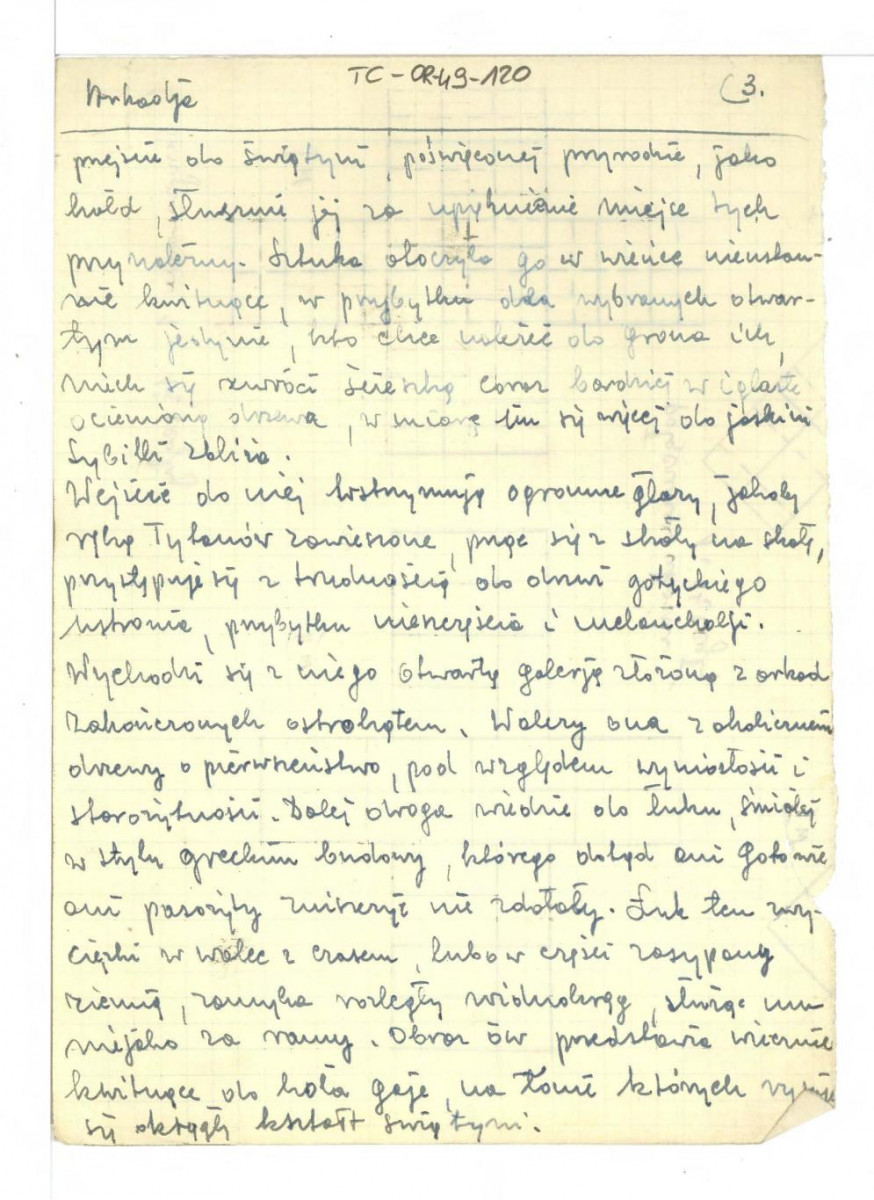 TC-OR-49-120
Arkadja (3.
przejście do świątyni, poświęconej przyrodzie, jako
hołd, słusznie jej za upiększenie miejsc tych
przynależny. Sztuka otoczyła go w wieńce nieustan-
nie kwitnące, w przybytku dla wybranych otwar-
tym jedynie, kto chce należeć do grona ich,
niech się zwróci ścieszką coraz bardziej w iglaste
ocienioną drzewa, w miarę im się więcej do jaskini
Sybilli zbliża.
Wejście do niej wstrzymują ogromne głazy, jakoby
ręką Tytanów zawieszone, pnąc się z skały na skałę,
przystępuje się z trudnością do drzwi gotyckiego
ustronia, przybytku nieszczęścia i melancholji.
Wychodzi się z niego otwartą galerją złożoną z arkad
zakończonych ostrokątem. Walczy ona z okolicznemi
drzewy o pierwszeństwo, pod względem wyniosłości i
starożytności. Dalej droga wiedzie do łuku, śmiałej
w stylu greckim budowy, którego dotąd ani Gotowie
ani pasorzyty zniszczyć nie zdołały. Łuk ten zwy-
cięzki w walce z czasem, lubo w części zasypany
ziemią, zamyka rozległy widnokrąg, służąc mu
niejako za ramy. Obraz ów przedstawia wiecznie
kwitnące do koła gaje, na łonie których
się okrągły kształt świątyni.